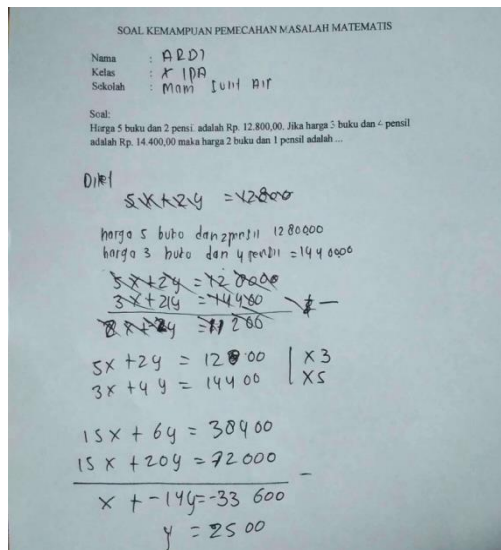 SOAL KEMAMPUAN PEMECAHAN MASALAH MATEMATIS
Nama : ARDI
Kelas : X IPA
Sekolah : Mam Sulit Air
Soal:
Harga 5 buku dan 2 pensi. adalah Rp. 12.800,00. Jika harga 3 buku dan 4 pensil
adalah Rp. 14.400,00 maka harga 2 buku dan 1 pensil adalah ...
Diket
5x+2y = 12800
harga 5 buko dan 2 pensil 1280000
harga 3 buko dan 4 pensil = 1440000
5x+2y = 12 8000
3x+24y = 14400
= 11200
5x +2y = 12800 | x 3
3x +4y = 14400 | x5
15x + 6y = 38400
15x + 20y = 72000 -
x + -14y = -33 600
y = 2500